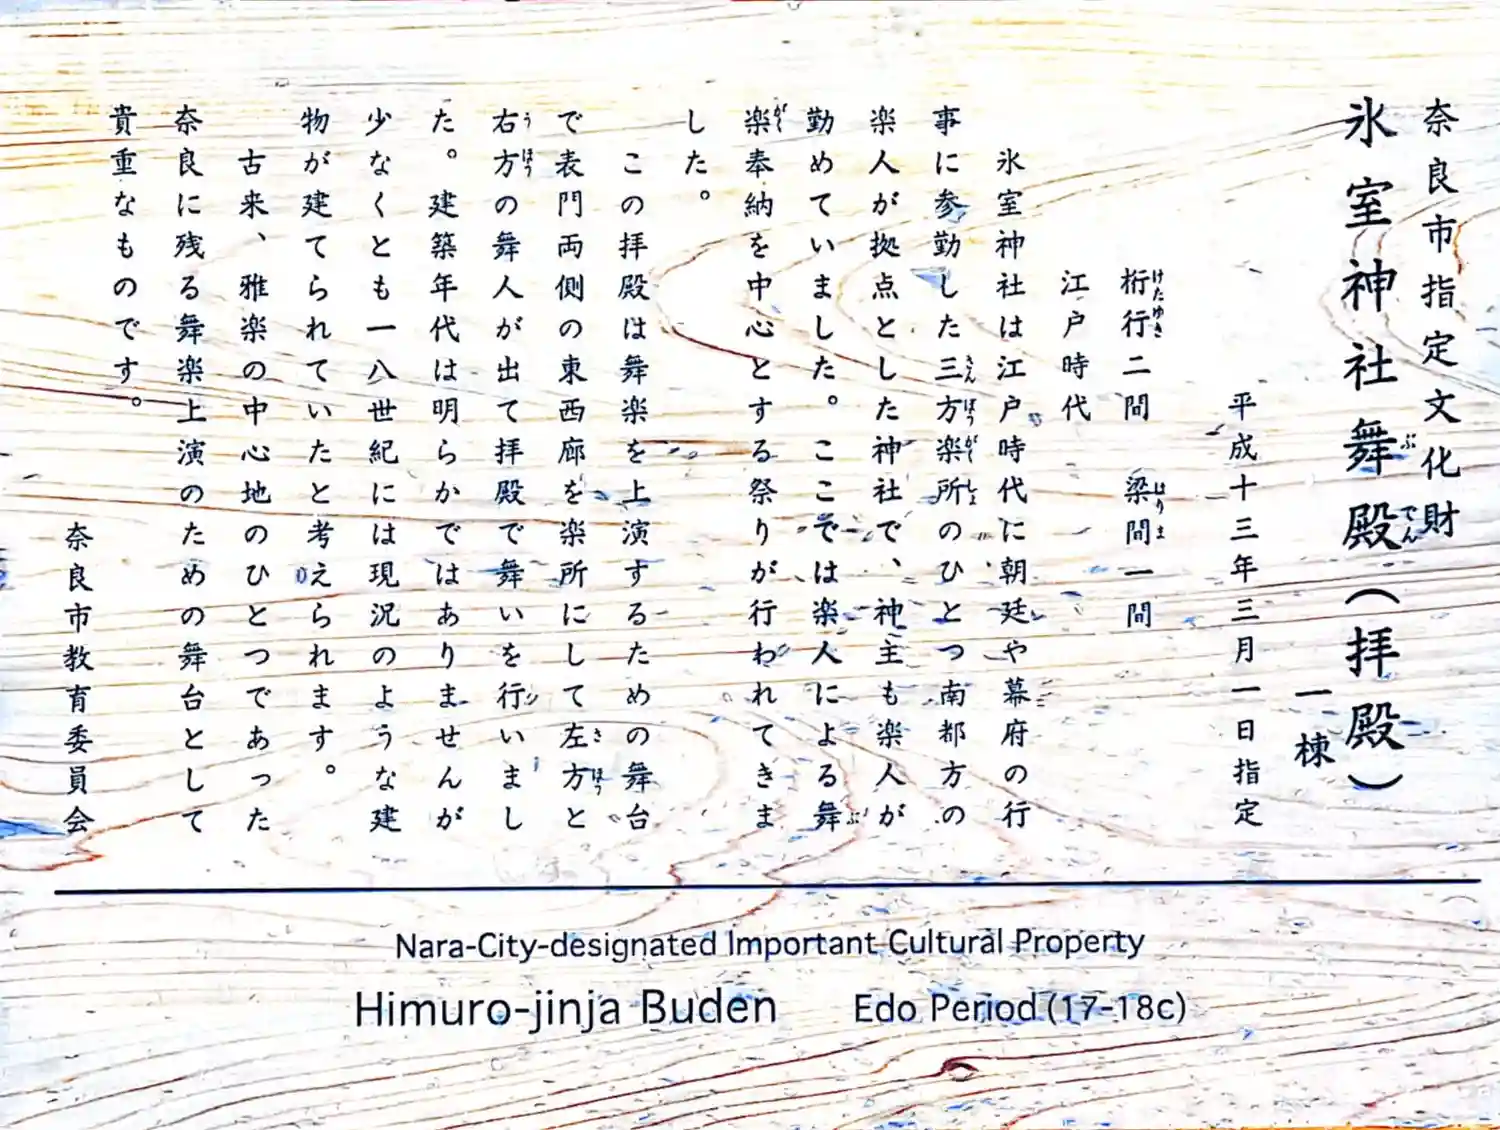 奈良市指定文化財
氷室神社舞殿（拝殿）
ぶ
でん
一棟
平成十三年三月一日指定
桁行二間　梁間一間
けたゆき
はりま
江戸時代
氷室神社は江戸時代に朝廷や幕府の行
事に参勤した三方楽所のひとつ南都方の
さんぽうがくしょ
楽人が拠点とした神社で、神主も楽人が
勤めていました。ここでは楽人による舞
ぶ
楽奉納を中心とする祭りが行われてきま
がく
した。
この拝殿は舞楽を上演するための舞台
で表門両側の東西廊を楽所にして左方と
さほう
右方の舞人が出て拝殿で舞いを行いまし
うほう
た。建築年代は明らかではありませんが
少なくとも一八世紀には現況のような建
物が建てられていたと考えられます。
古来、雅楽の中心地のひとつであった
奈良に残る舞楽上演のための舞台として
貴重なものです。
奈良市教育委員会
Nara-City-designated Important Cultural Property
Himuro-jinja Buden　Edo Period (17-18c)